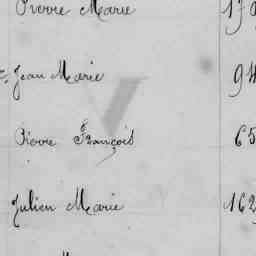 Pierre Marie
Jean Marie 94
Pierre François 65
Julien Marie 162